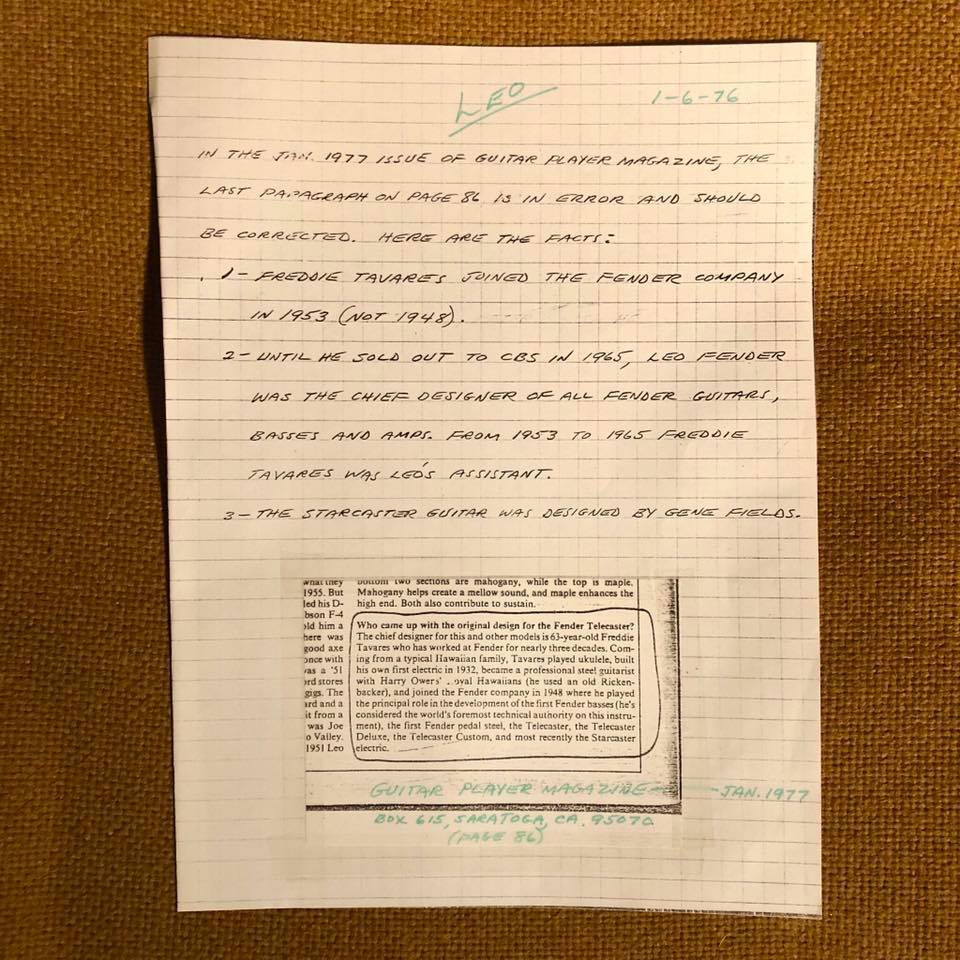 LEO
1-6-76
IN THE JAN. 1977 ISSUE OF GUITAR PLAYER MAGAZINE, THE
LAST PARAGRAPH ON PAGE 86 IS IN ERROR AND SHOULD
BE CORRECTED. HERE ARE THE FACTS:
1- FREDDIE TAVARES JOINED THE FENDER COMPANY
IN 1953 (NOT 1948).
2- UNTIL HE SOLD OUT TO CBS IN 1965, LEO FENDER
WAS THE CHIEF DESIGNER OF ALL FENDER GUITARS,
BASSES AND AMPS. FROM 1953 TO 1965 FREDDIE
TAVARES WAS LEO'S ASSISTANT.
3- THE STARCASTER GUITAR WAS DESIGNED BY GENE FIELDS.
what they
1955. But
led his D-
bson F-4
old him a
here was
good axe
once with
was a '51
ord stores
gigs. The
ard and a
it from a
was Joe
o Valley.
1951 Leo
bottom two sections are mahogany, while the top is maple.
Mahogany helps create a mellow sound, and maple enhances the
high end. Both also contribute to sustain.
Who came up with the original design for the Fender Telecaster?
The chief designer for this and other models is 63-year-old Freddie
Tavares who has worked at Fender for nearly three decades. Com-
ing from a typical Hawaiian family, Tavares played ukulele, built
his own first electric in 1932, became a professional steel guitarist
with Harry Owers' . oyal Hawaiians (he used an old Ricken-
backer), and joined the Fender company in 1948 where he played
the principal role in the development of the first Fender basses (he's
considered the world's foremost technical authority on this instru-
ment), the first Fender pedal steel, the Telecaster, the Telecaster
Deluxe, the Telecaster Custom, and most recently the Starcaster
electric.
GUITAR PLAYER MAGAZINE - JAN. 1977
BOX 615, SARATOGA, CA. 95070
(PAGE 86)